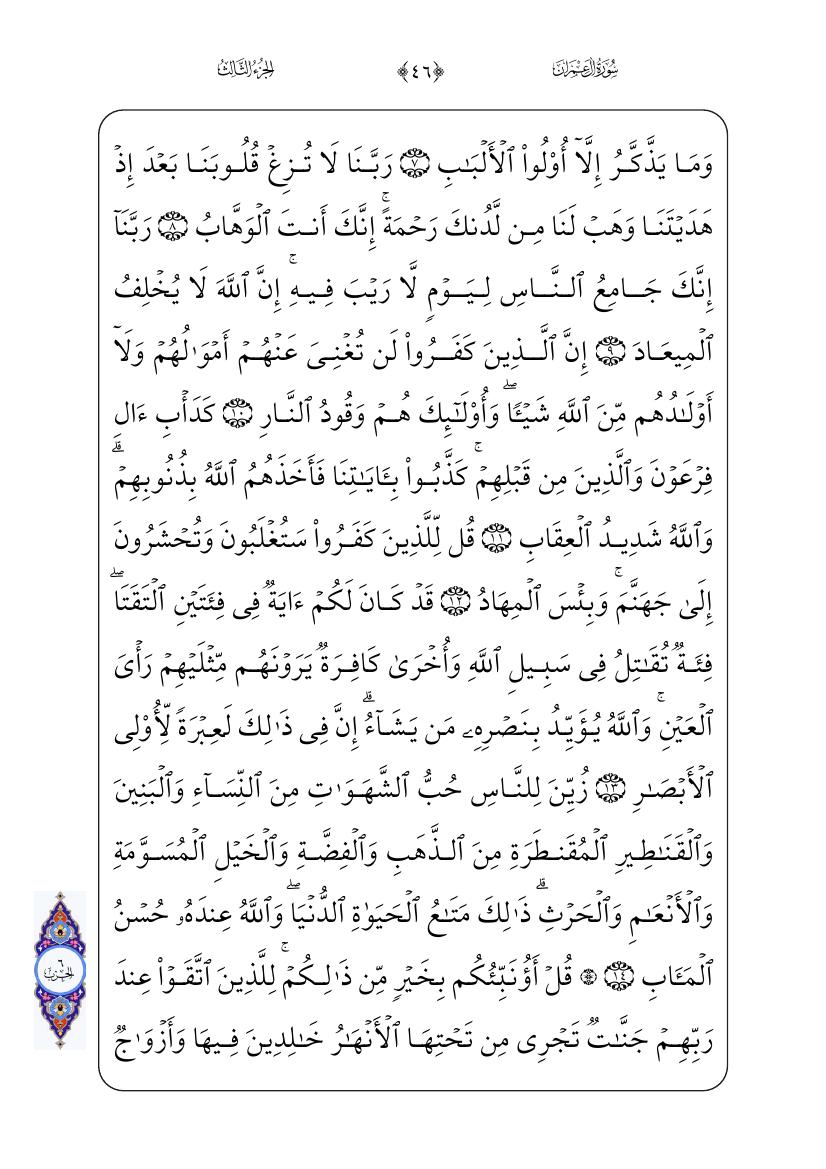 سُورَةُ آلِ عِمْرَانَ ﴿٤٦﴾ الجُزْءُ الثَّالِثُ
وَمَا يَذَّكَّرُ إِلَّآ أُوْلُواْ ٱلۡأَلۡبَٰبِ ٧ رَبَّنَا لَا تُزِغۡ قُلُوبَنَا بَعۡدَ إِذۡ
هَدَيۡتَنَا وَهَبۡ لَنَا مِن لَّدُنكَ رَحۡمَةًۚ إِنَّكَ أَنتَ ٱلۡوَهَّابُ ٨ رَبَّنَآ
إِنَّكَ جَامِعُ ٱلنَّاسِ لِيَوۡمٖ لَّا رَيۡبَ فِيهِۚ إِنَّ ٱللَّهَ لَا يُخۡلِفُ
ٱلۡمِيعَادَ ٩ إِنَّ ٱلَّذِينَ كَفَرُواْ لَن تُغۡنِيَ عَنۡهُمۡ أَمۡوَٰلُهُمۡ وَلَآ
أَوۡلَٰدُهُم مِّنَ ٱللَّهِ شَيۡـٔٗاۖ وَأُوْلَٰٓئِكَ هُمۡ وَقُودُ ٱلنَّارِ ١٠ كَدَأۡبِ ءَالِ
فِرۡعَوۡنَ وَٱلَّذِينَ مِن قَبۡلِهِمۡۚ كَذَّبُواْ بِـَٔايَٰتِنَا فَأَخَذَهُمُ ٱللَّهُ بِذُنُوبِهِمۡۗ
وَٱللَّهُ شَدِيدُ ٱلۡعِقَابِ ١١ قُل لِّلَّذِينَ كَفَرُواْ سَتُغۡلَبُونَ وَتُحۡشَرُونَ
إِلَىٰ جَهَنَّمَۚ وَبِئۡسَ ٱلۡمِهَادُ ١٢ قَدۡ كَانَ لَكُمۡ ءَايَةٞ فِي فِئَتَيۡنِ ٱلۡتَقَتَاۖ
فِئَةٞ تُقَٰتِلُ فِي سَبِيلِ ٱللَّهِ وَأُخۡرَىٰ كَافِرَةٞ يَرَوۡنَهُم مِّثۡلَيۡهِمۡ رَأۡيَ
ٱلۡعَيۡنِۚ وَٱللَّهُ يُؤَيِّدُ بِنَصۡرِهِۦ مَن يَشَآءُۗ إِنَّ فِي ذَٰلِكَ لَعِبۡرَةٗ لِّأُوْلِي
ٱلۡأَبۡصَٰرِ ١٣ زُيِّنَ لِلنَّاسِ حُبُّ ٱلشَّهَوَٰتِ مِنَ ٱلنِّسَآءِ وَٱلۡبَنِينَ
وَٱلۡقَنَٰطِيرِ ٱلۡمُقَنطَرَةِ مِنَ ٱلذَّهَبِ وَٱلۡفِضَّةِ وَٱلۡخَيۡلِ ٱلۡمُسَوَّمَةِ
وَٱلۡأَنۡعَٰمِ وَٱلۡحَرۡثِۗ ذَٰلِكَ مَتَٰعُ ٱلۡحَيَوٰةِ ٱلدُّنۡيَاۖ وَٱللَّهُ عِندَهُۥ حُسۡنُ
ٱلۡمَـَٔابِ ١٤ ۞ قُلۡ أَؤُنَبِّئُكُم بِخَيۡرٖ مِّن ذَٰلِكُمۡۚ لِلَّذِينَ ٱتَّقَوۡاْ عِندَ
رَبِّهِمۡ جَنَّٰتٞ تَجۡرِي مِن تَحۡتِهَا ٱلۡأَنۡهَٰرُ خَٰلِدِينَ فِيهَا وَأَزۡوَٰجٞ
٦
الحزب